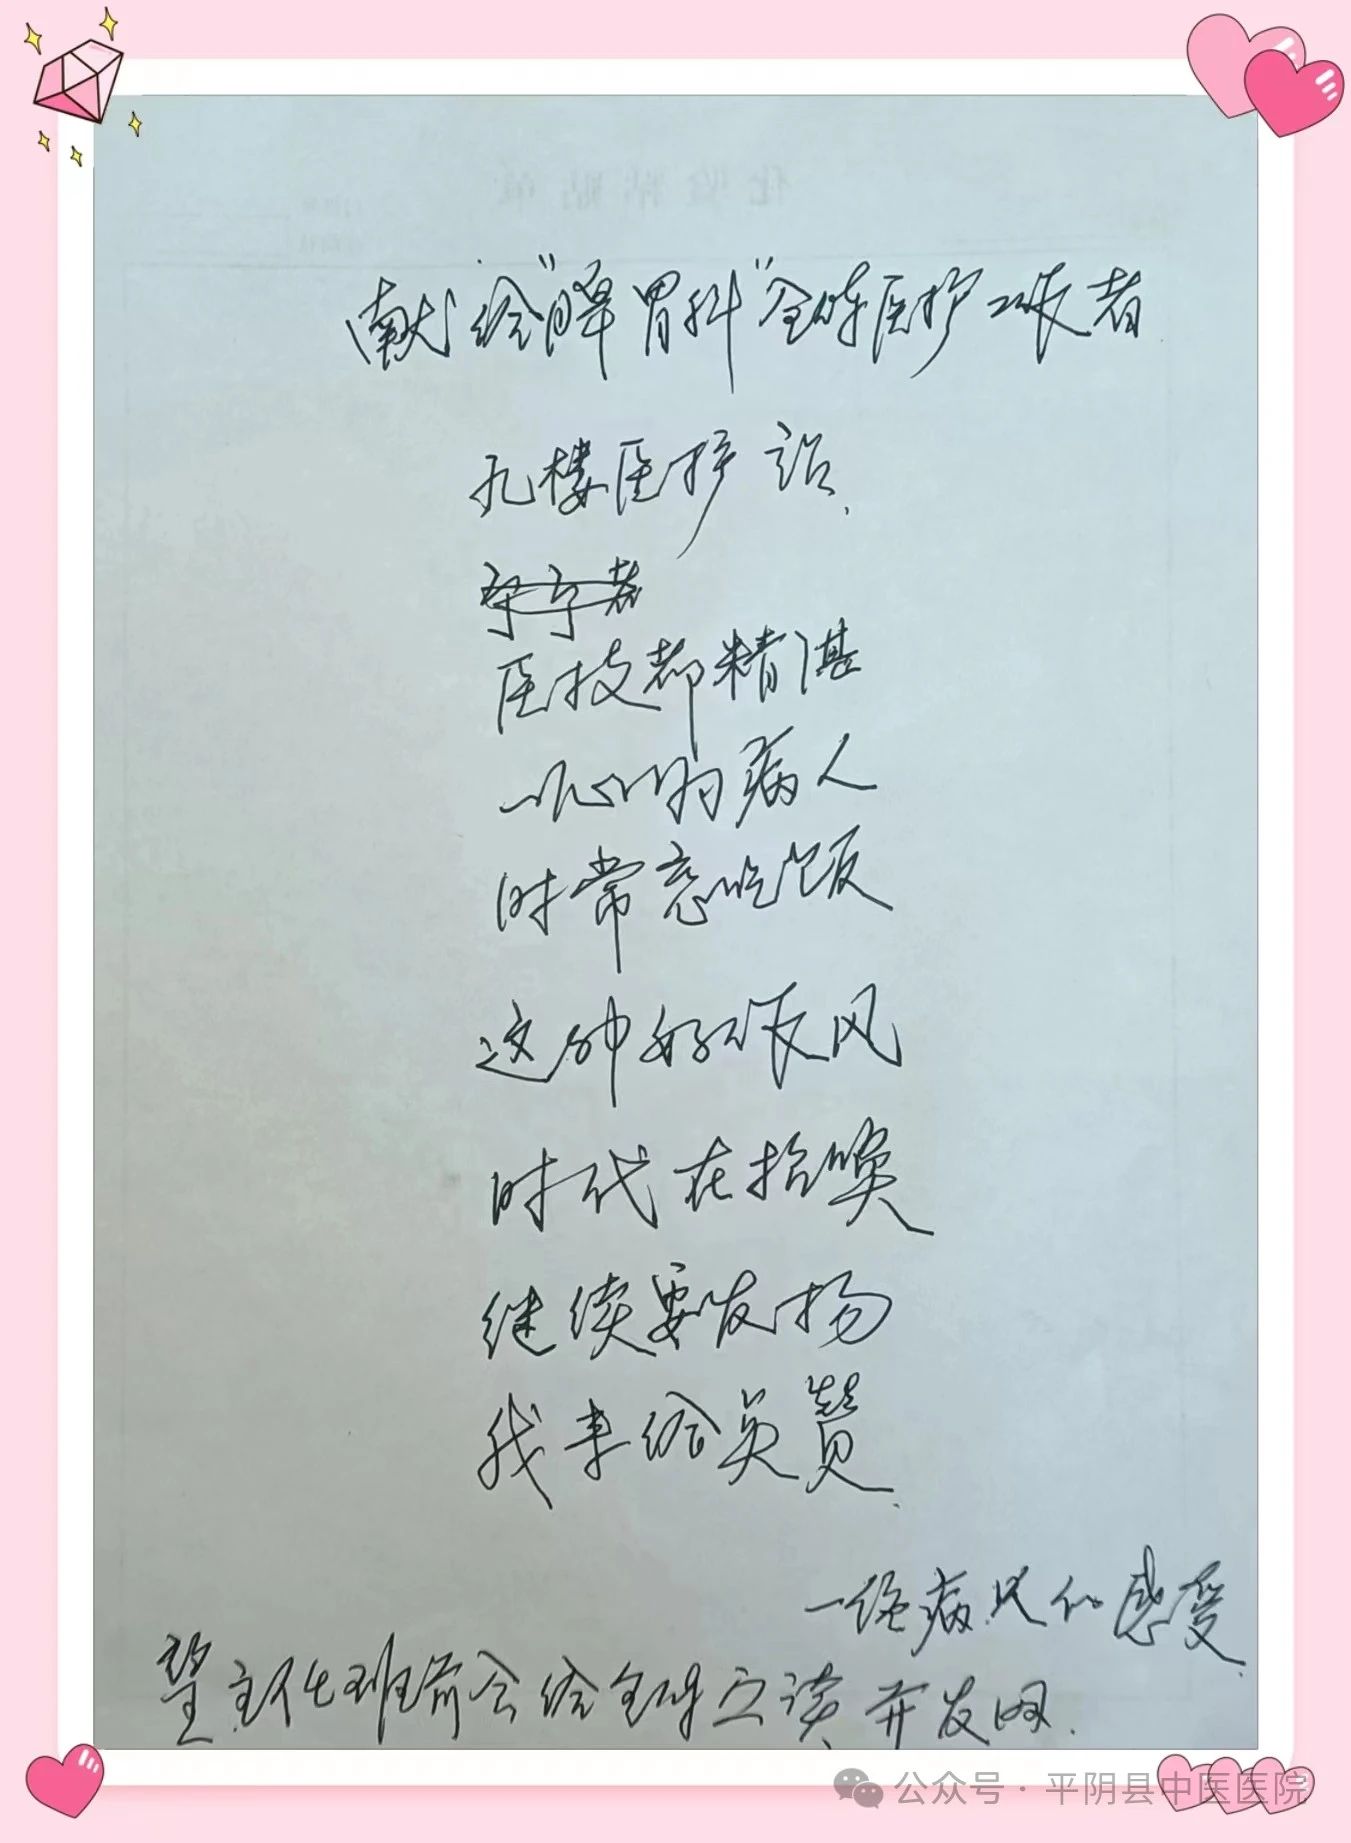 献给"脾胃科"全体医护工作者
九楼医护站
医技都精湛
一心为病人
时常忘吃饭
这种好作风
时代在招唤
继续要发扬
我来给点赞
一位病员的感受
望主任班前会给全体宣读并发网.
公众号·平阴县中医医院